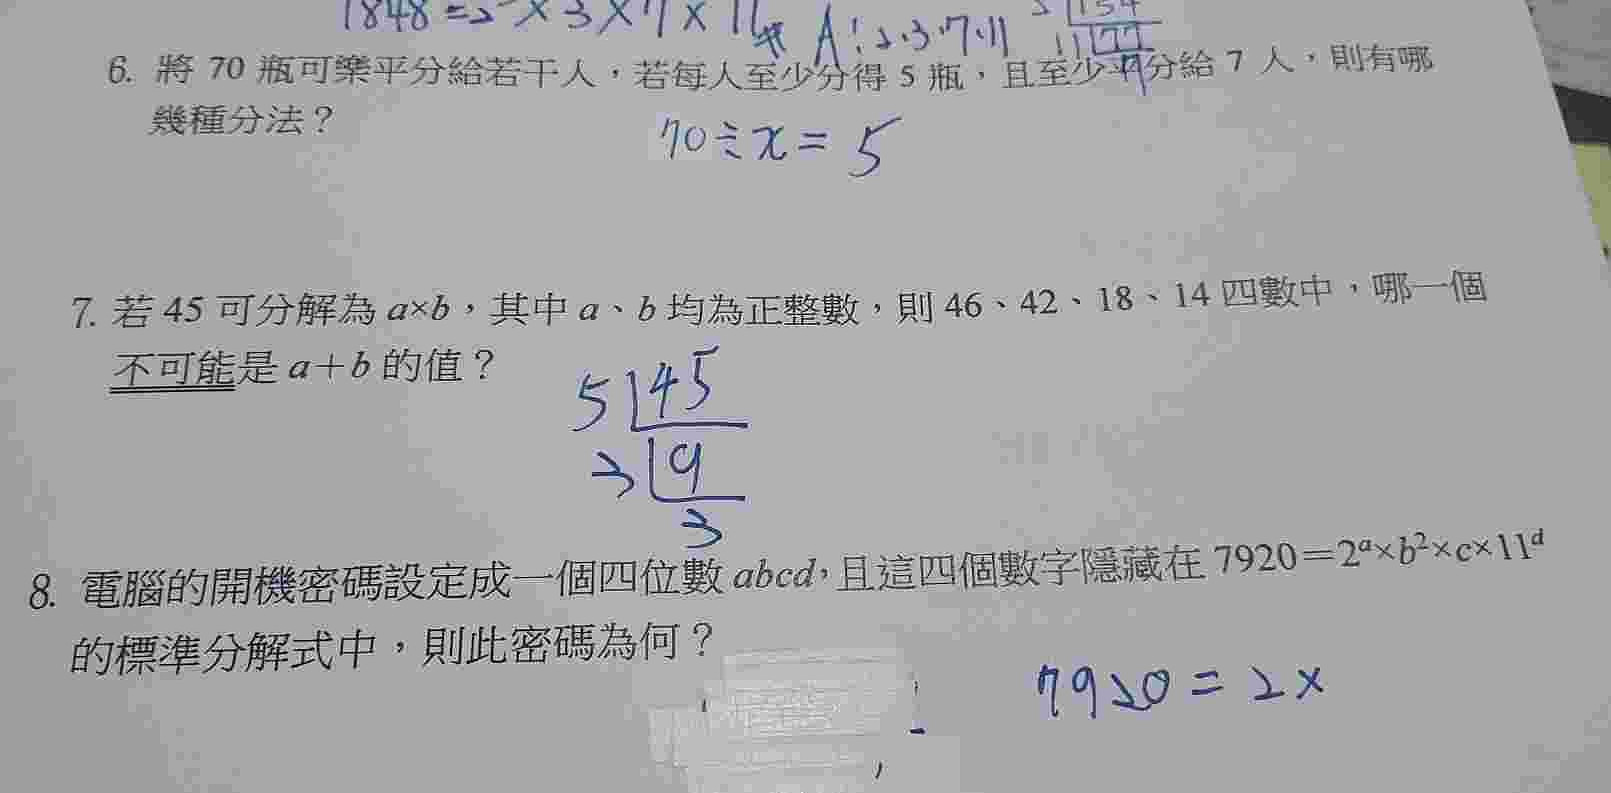 1848=2 ×3×7×11
A:2.3.7.11
2 154
11 77
7
6. 將 70 瓶可樂平分給若干人，若每人至少分得 5 瓶，且至少平分給 7 人，則有哪
幾種分法？
70÷x=5
7. 若 45 可分解為 a×b，其中 a、b 均為正整數，則 46、42、18、14 四數中，哪一個
不可能是 a+b 的值？
5 45
3 9
3
8. 電腦的開機密碼設定成一個四位數 abcd，且這四個數字隱藏在 7920=2ᵃ×b²×c×11ᵈ
的標準分解式中，則此密碼為何？
7920=2×